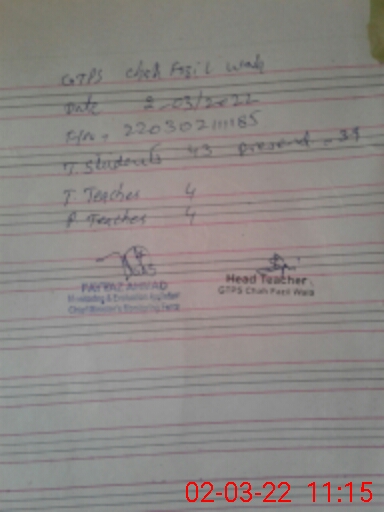 GTPS Chah Fazil Wala
Date 2-03/2022
T. Students 43 present - 39
T. Teaches 4
P. Teaches 4
FAYYAZ AHMAD
Monitoring & Evaluation Assistant
Chief Minister's Monitoring Force
Head Teacher
GTPS Chah Fazil Wala
02-03-22 11:15